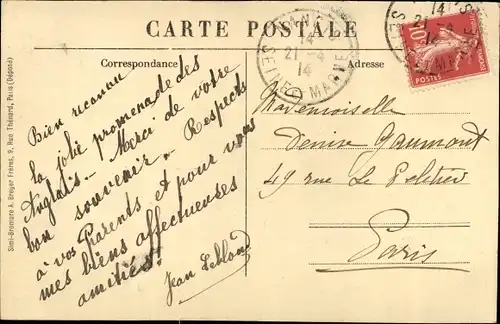 CARTE POSTALE
Correspondance
Adresse
Bien reconnu
la jolie promenade des
Anglais - Merci de votre
bon souvenir. Respects
à vos Parents et pour vous
mes biens affectueuses
amitiés!
Jean Leblond
Mademoiselle
Denise Gaumont
49 rue Le Peletier
Paris
14
21 - 4
14
SEINE MARNE
14
21 - 4
14
10
POSTES
Simi-Bromure A. Breger Frères, 9, Rue Thénard, Paris (Déposé)